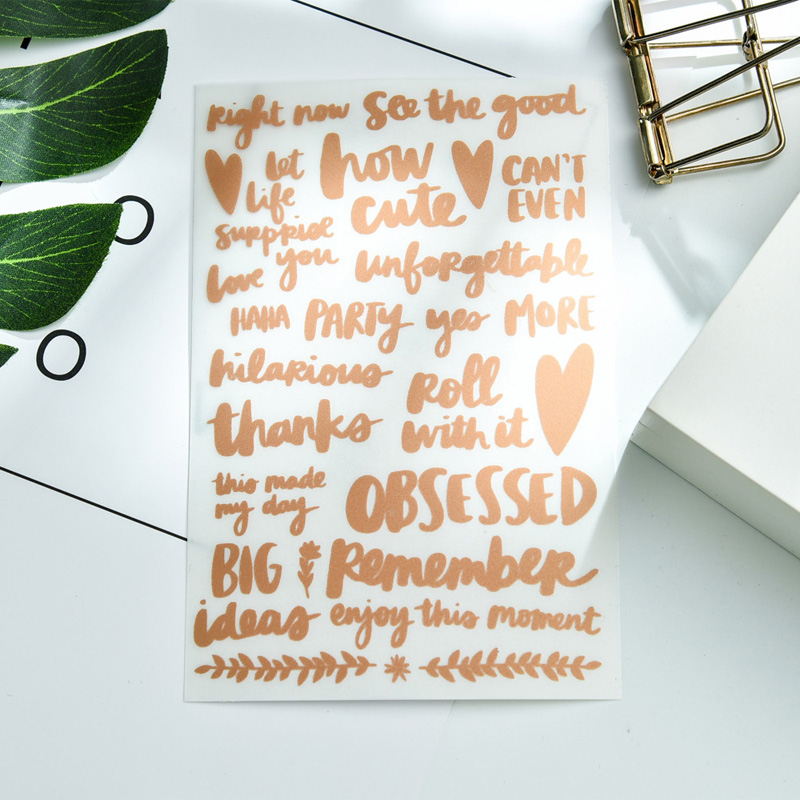 right now see the good
let life surprise you
how cute
CAN'T EVEN
love
unforgettable
HAHA PARTY yes MORE
hilarious
roll with it
thanks
this made my day
OBSESSED
BIG ideas
Remember
enjoy this moment